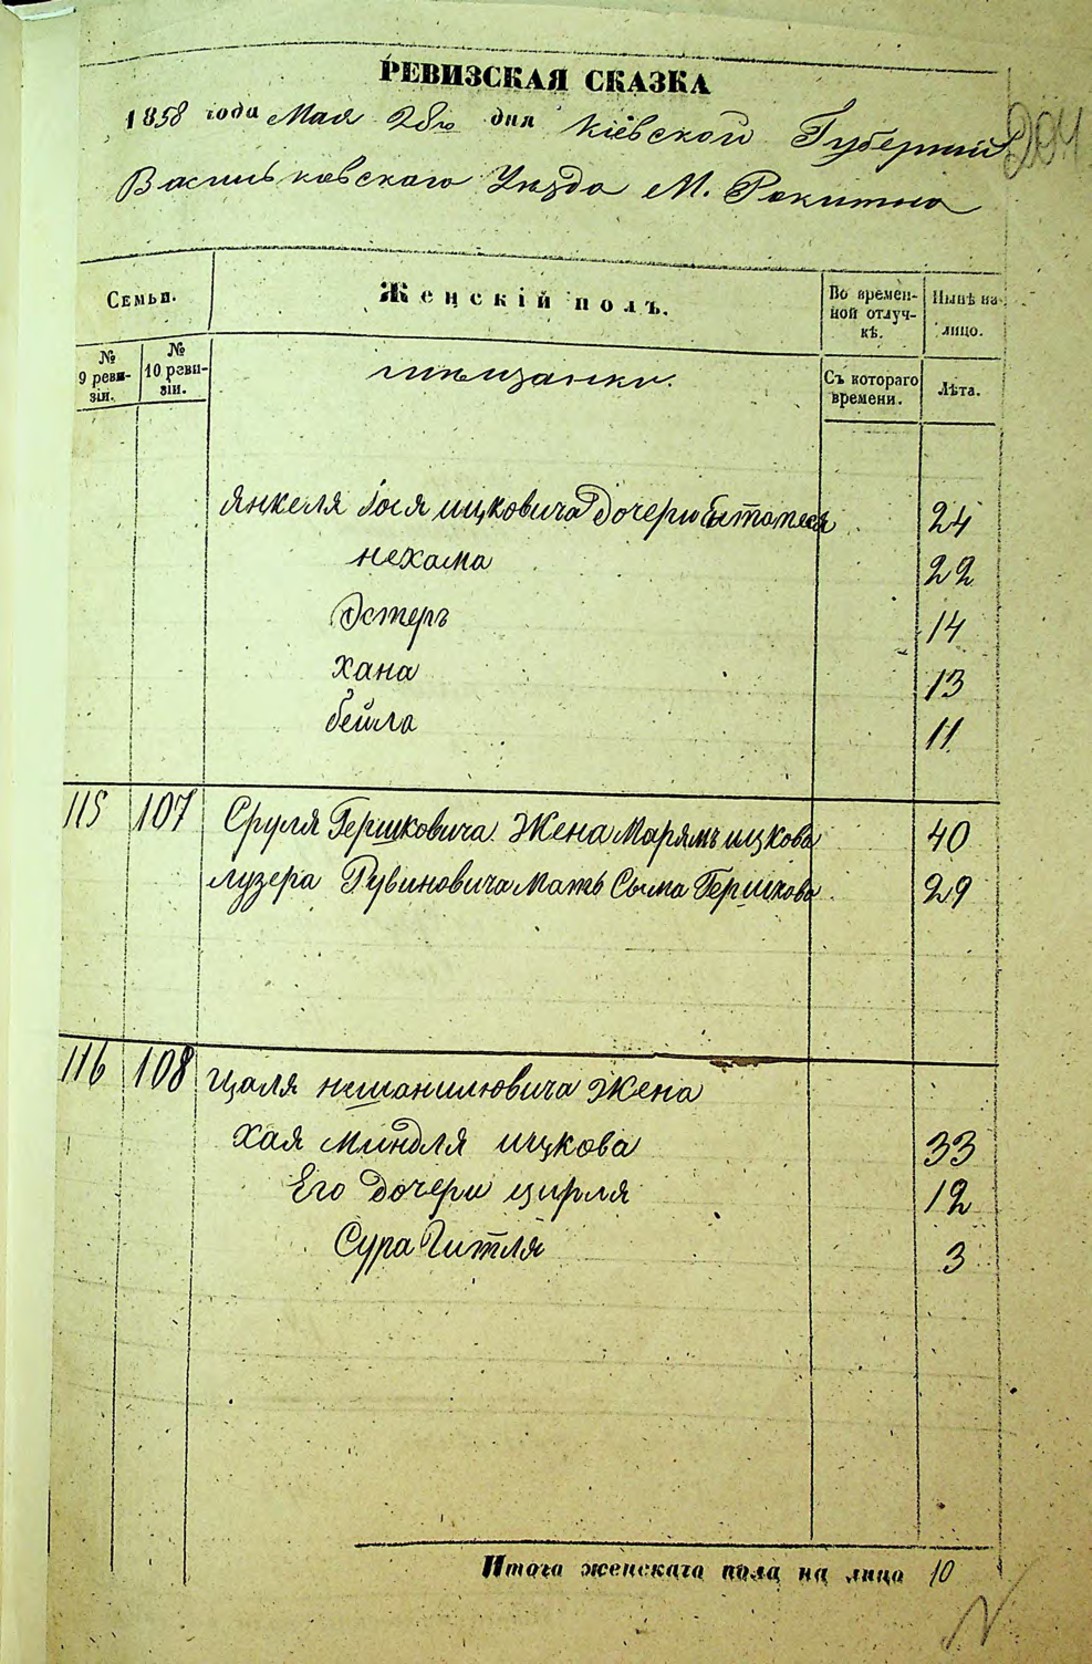 РЕВИЗСКАЯ СКАЗКА
1858 года Мая 28го дня Кіевской Губерніи
204
Васильковскаго Уѣзда М. Рокитна
Семьи.
Женскій полъ.
Во времен-
ной отлуч-
кѣ.
Нынѣ на-
лицо.
№
9 реви-
зіи.
№
10 реви-
зіи.
мѣщанки.
Съ котораго
времени.
Лѣта.
Янкеля Іося ицковича Дочери 24
нехама 22
Эстеръ 14
хана 13
бейла 11
115 107 Сруля Гершковича Жена Марямъ ицкова 40
лузера Рувиновича Мать Сыма Гершкова 29
116 108 Цаля Жена
хая миндля ицкова 33
Его дочери цирля 12
Сура Гитля 3
Итого женскаго пола на лицо 10